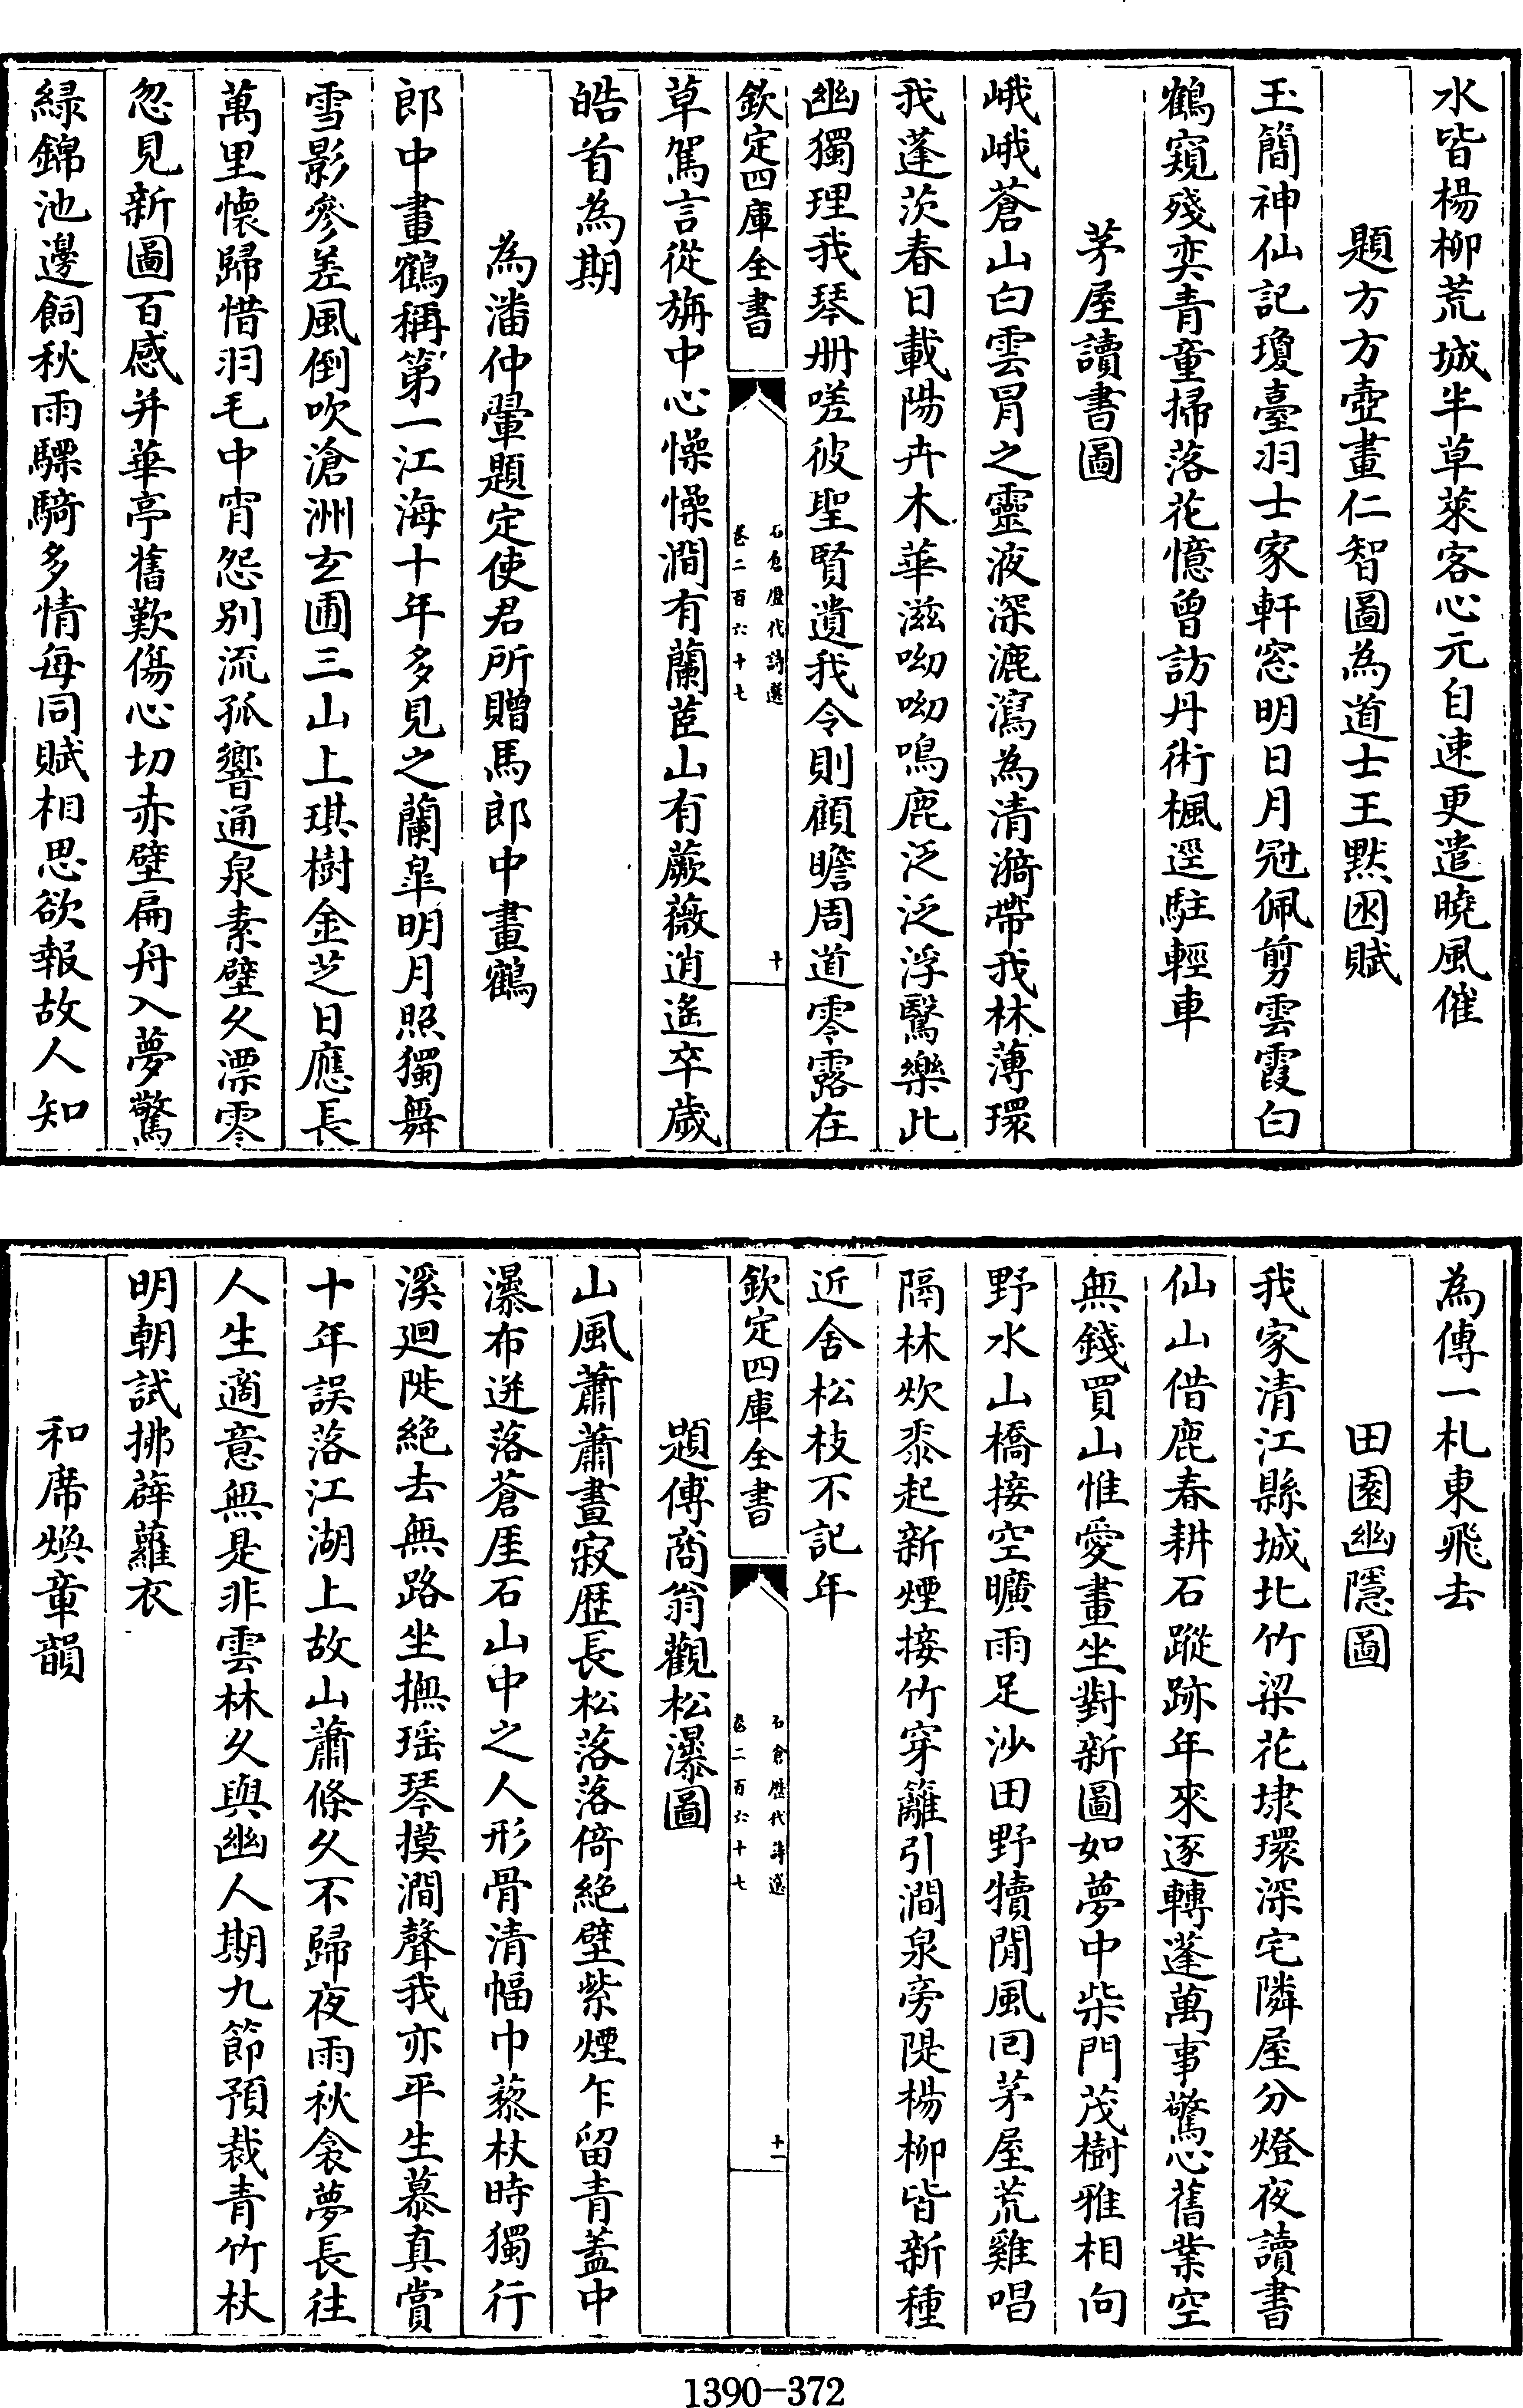 水皆楊柳荒城半草萊客心元自速更遣曉風催
題方方壺畫仁智圖為道士王默囦賦
玉簡神仙記瓊臺羽士家軒窓明日月冠佩剪雲霞白
鶴窺殘奕青童掃落花憶曾訪丹術楓逕駐輕車
茅屋讀書圖
峨峨蒼山白雲冐之靈液深漉瀉為清漪帶我林薄環
我蓬茨春日載陽卉木華滋呦呦鳴鹿泛泛浮鷖樂此
幽獨理我琴册嗟彼聖賢遺我令則顧瞻周道零露在
欽定四庫全書
石倉歴代詩選
卷二百六十七
十
草駕言從旃中心懆懆澗有蘭茝山有蕨薇逍遙卒歲
皓首為期
為潘仲翬題定使君所贈馬郎中畫鶴
郎中畫鶴稱第一江海十年多見之蘭臯明月照獨舞
雪影參差風倒吹滄洲玄圃三山上琪樹金芝日應長
萬里懷歸惜羽毛中宵怨别流孤響通泉素壁久漂零
忽見新圖百感并華亭舊歎傷心切赤壁扁舟入夢驚
緑錦池邊飼秋雨驃騎多情每同賦相思欲報故人知
為傳一札東飛去
田園幽隱圖
我家清江縣城北竹梁花埭環深宅隣屋分燈夜讀書
仙山借鹿春耕石蹤跡年來逐轉蓬萬事驚心舊業空
無錢買山惟愛畫坐對新圖如夢中柴門茂樹雅相向
野水山橋接空曠雨足沙田野犢閒風囘茅屋荒雞唱
隔林炊黍起新煙接竹穿籬引澗泉旁隄楊柳皆新種
近舍松枝不記年
欽定四庫全書
石倉歴代詩選
卷二百六十七
十一
題傅商翁觀松瀑圖
山風蕭蕭晝寂歴長松落落倚絶壁紫煙乍留青蓋中
瀑布迸落蒼厓石山中之人形骨清幅巾藜杖時獨行
溪廻陡絶去無路坐撫瑶琴摸澗聲我亦平生慕真賞
十年誤落江湖上故山蕭條久不歸夜雨秋衾夢長往
人生適意無是非雲林久與幽人期九節預裁青竹杖
明朝試拂薜蘿衣
和席煥章韻
1390-372